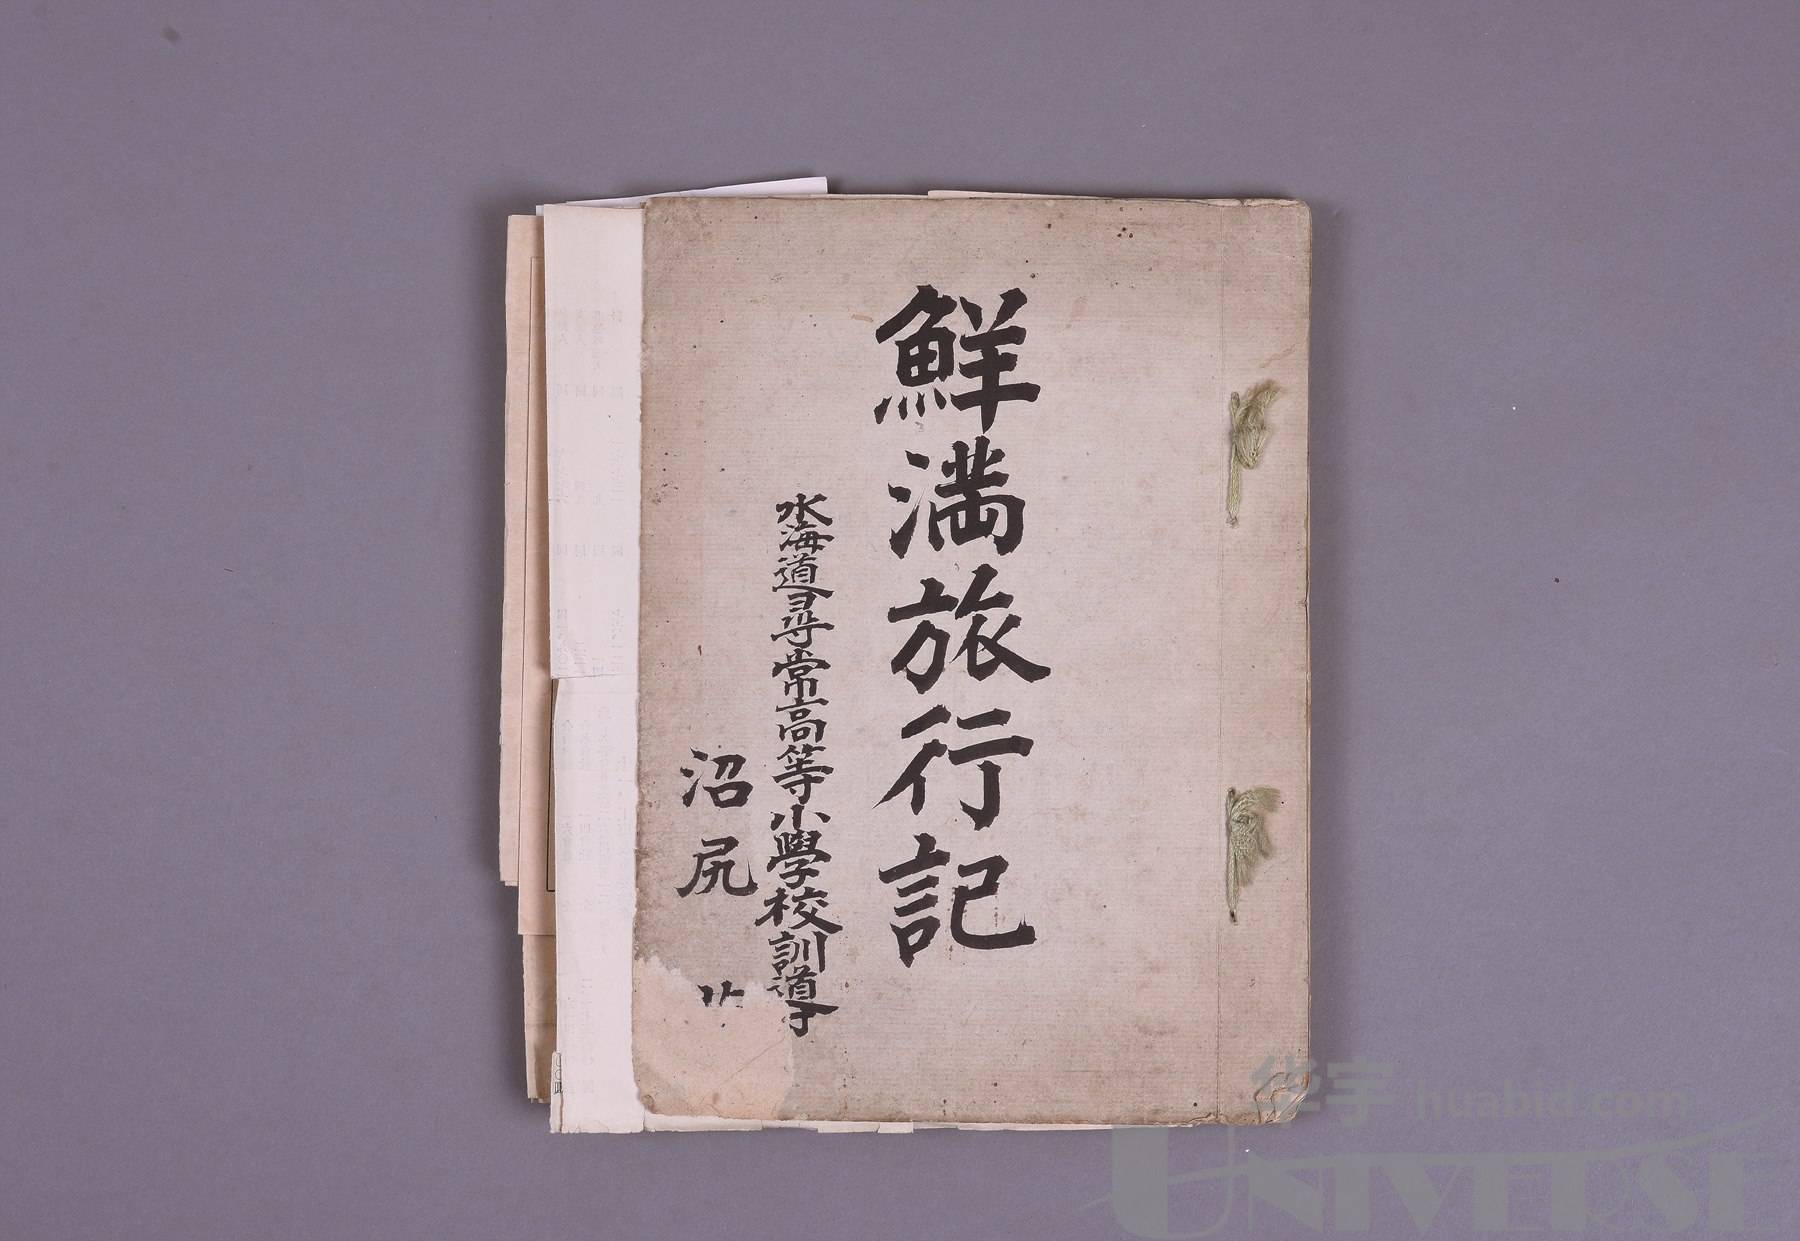 鮮満旅行記
水海道尋常高等小學校訓導
沼尻
华宇 huabid.com
UNIVERSE